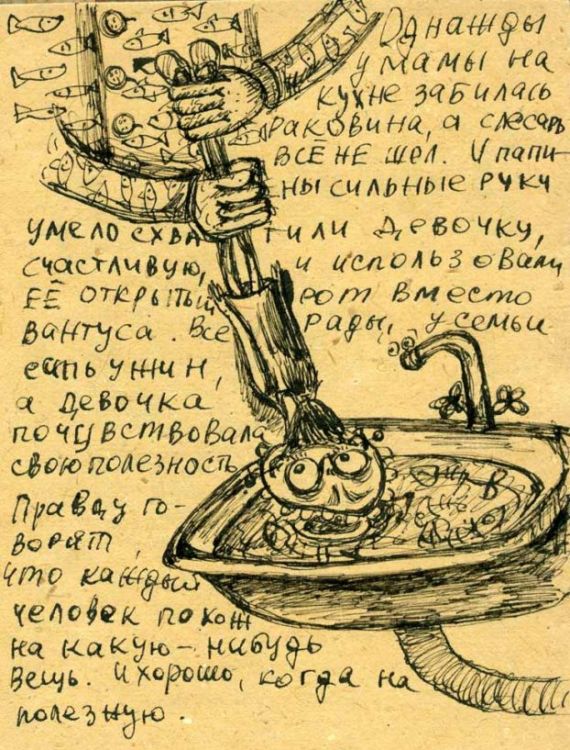 Однажды
у мамы на
кухне забилась
раковина, а слесарь
всё не шёл. И папи-
ны сильные руки
умело схватили девочку,
счастливую, и использовали
её открытый рот вместо
вантуса. Все рады, у семьи
есть ужин,
а девочка
почувствовала
свою полезность
Правду го-
ворят,
что каждый
человек похож
на какую-нибудь
вещь. И хорошо, когда на
полезную.